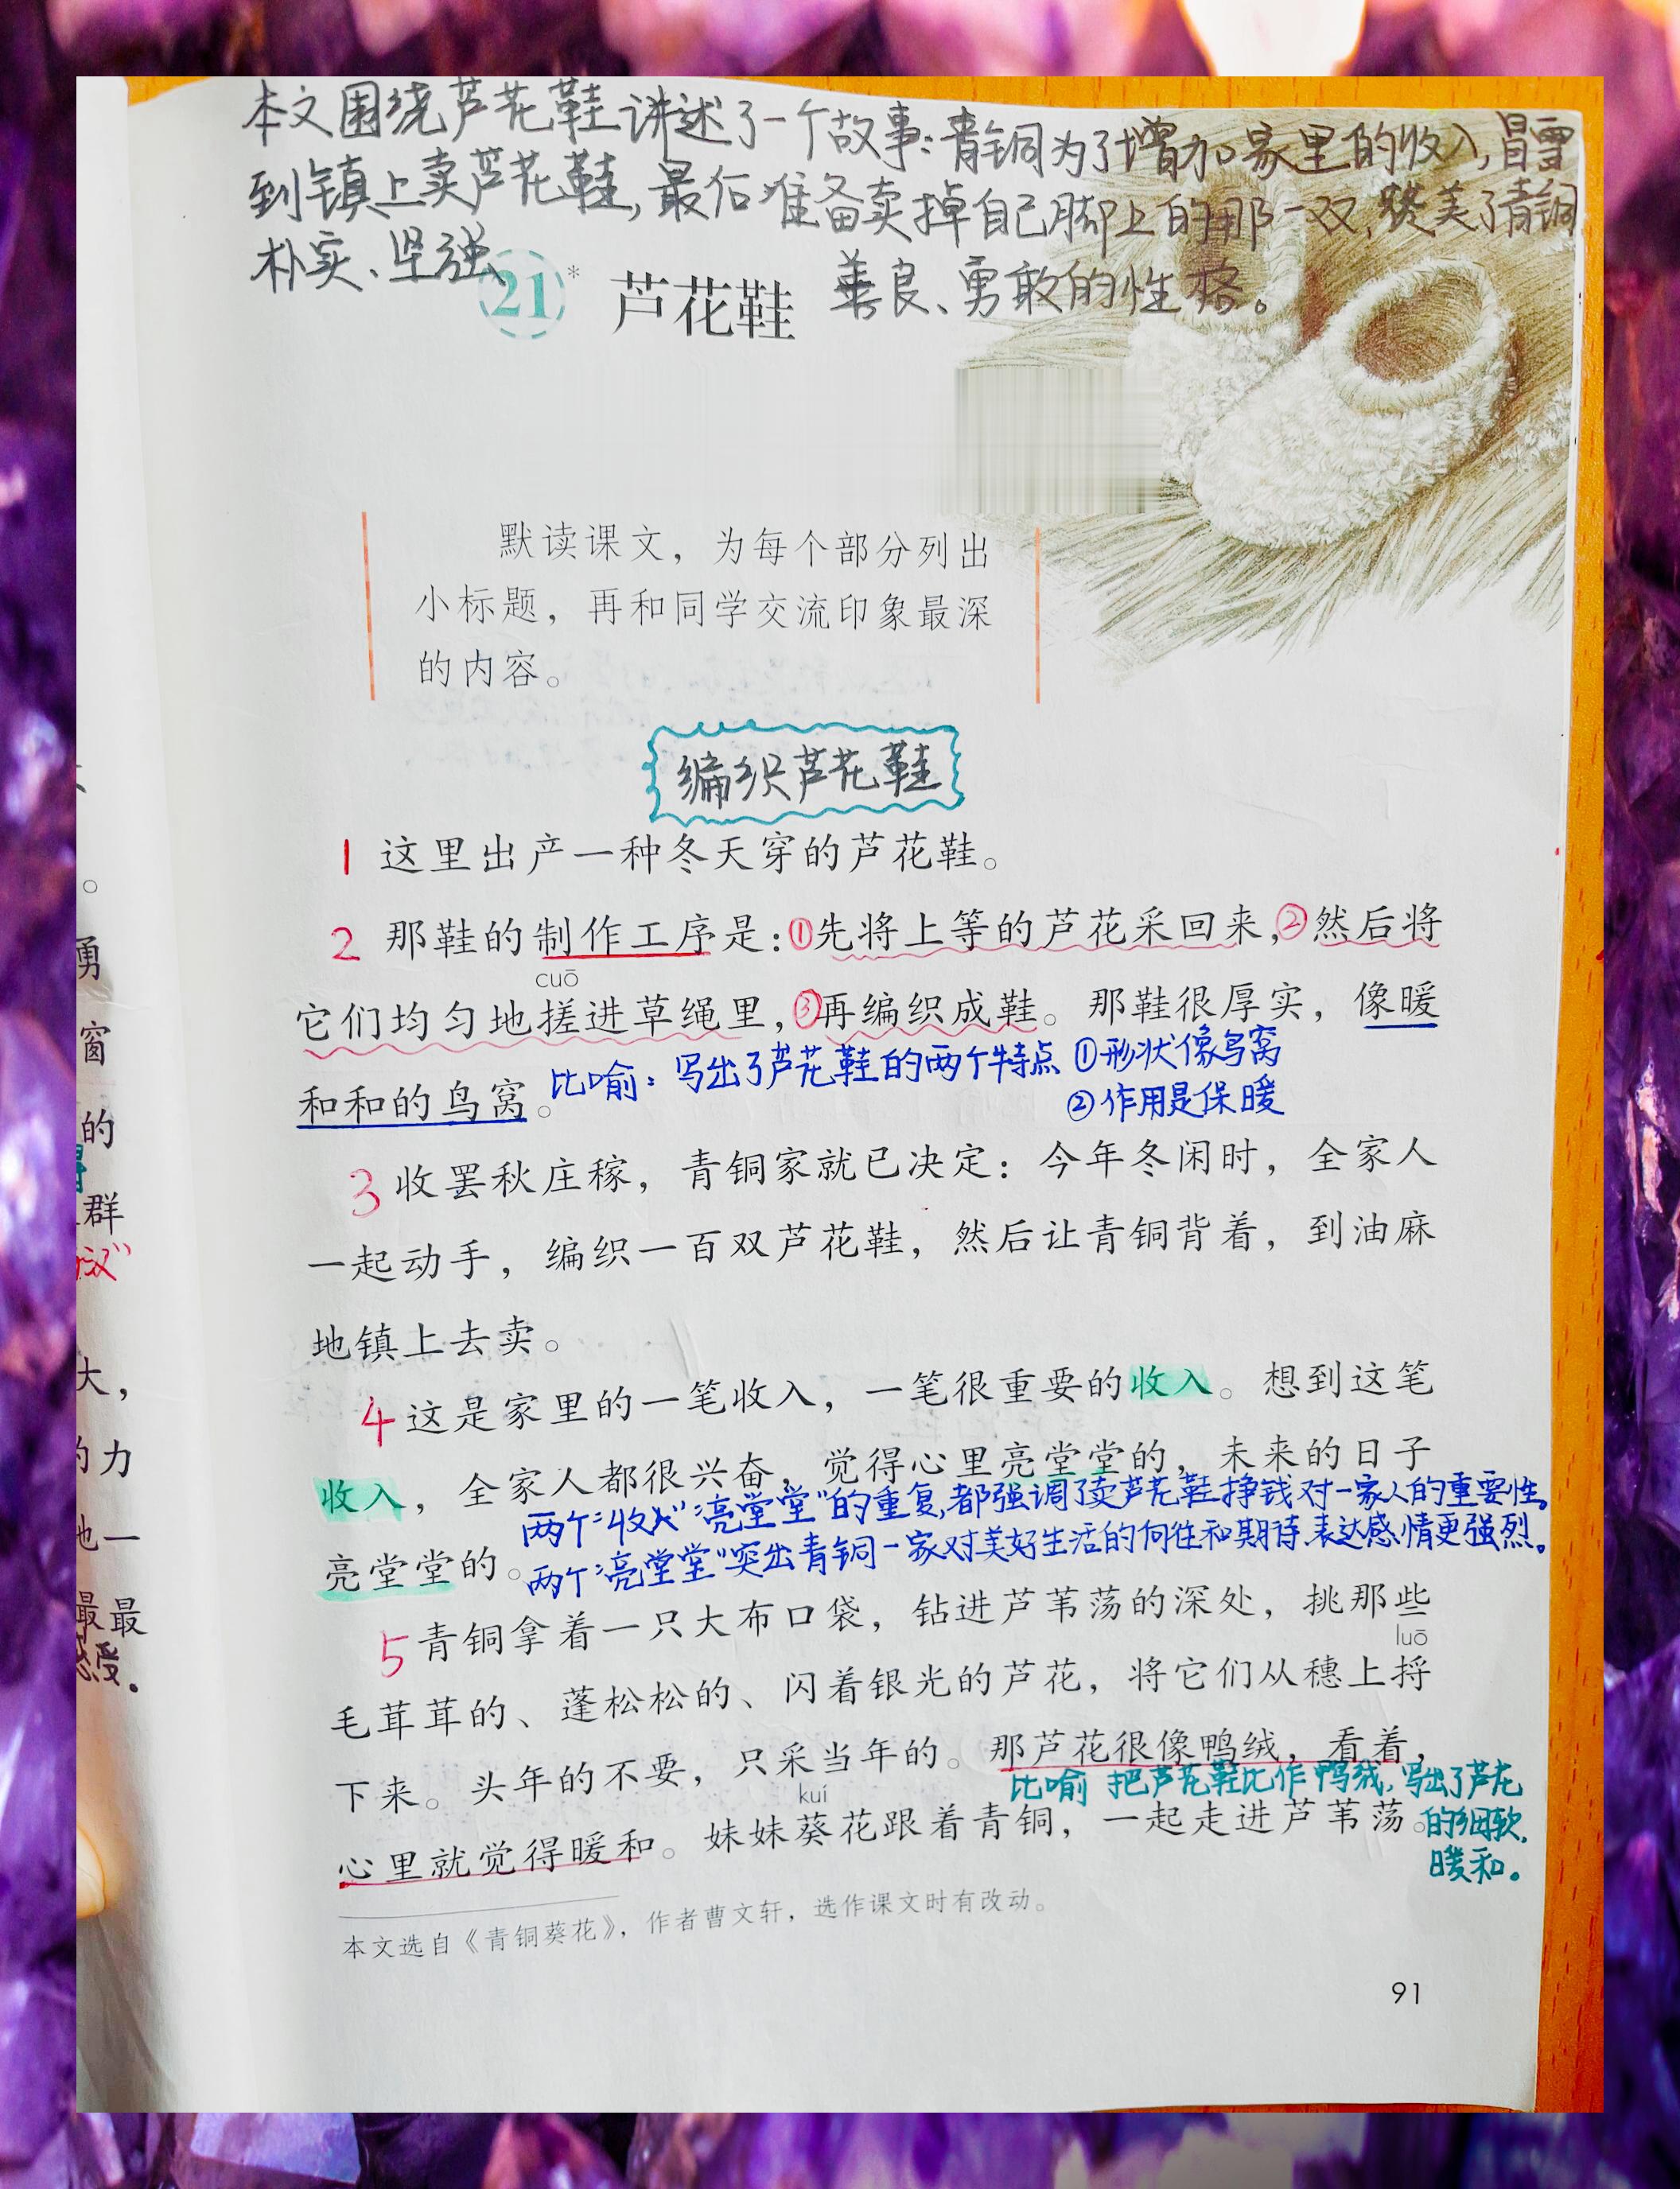 本文围绕芦花鞋讲述了一个故事:青铜为了增加家里的收入,冒雪
到镇上卖芦花鞋,最后准备卖掉自己脚上的那一双,赞美了青铜
朴实、坚强、
善良、勇敢的性格。
21* 芦花鞋
默读课文，为每个部分列出
小标题，再和同学交流印象最深
的内容。
编织芦花鞋
1 这里出产一种冬天穿的芦花鞋。
2 那鞋的制作工序是:①先将上等的芦花采回来,②然后将
cuō
它们均匀地搓进草绳里,③再编织成鞋。那鞋很厚实，像暖
和和的鸟窝。
比喻:写出了芦花鞋的两个特点 ①形状像鸟窝
②作用是保暖
3 收罢秋庄稼，青铜家就已决定：今年冬闲时，全家人
一起动手，编织一百双芦花鞋，然后让青铜背着，到油麻
地镇上去卖。
4 这是家里的一笔收入，一笔很重要的收入。想到这笔
收入，全家人都很兴奋，觉得心里亮堂堂的，未来的日子
两个“收入”“亮堂堂”的重复,都强调了卖芦花鞋挣钱对一家人的重要性。
亮堂堂的。
两个“亮堂堂”突出青铜一家对美好生活的向往和期待.表达感情更强烈。
5 青铜拿着一只大布口袋，钻进芦苇荡的深处，挑那些
luō
毛茸茸的、蓬松松的、闪着银光的芦花，将它们从穗上捋
下来。头年的不要，只采当年的。那芦花很像鸭绒，看着，
比喻 把芦花鞋比作鸭绒,写出了芦花
的细软,
暖和。
kuí
心里就觉得暖和。妹妹葵花跟着青铜，一起走进芦苇荡。
本文选自《青铜葵花》，作者曹文轩，选作课文时有改动。
91
。
勇
窗
的
群
大，
力
地一
最最
感受。